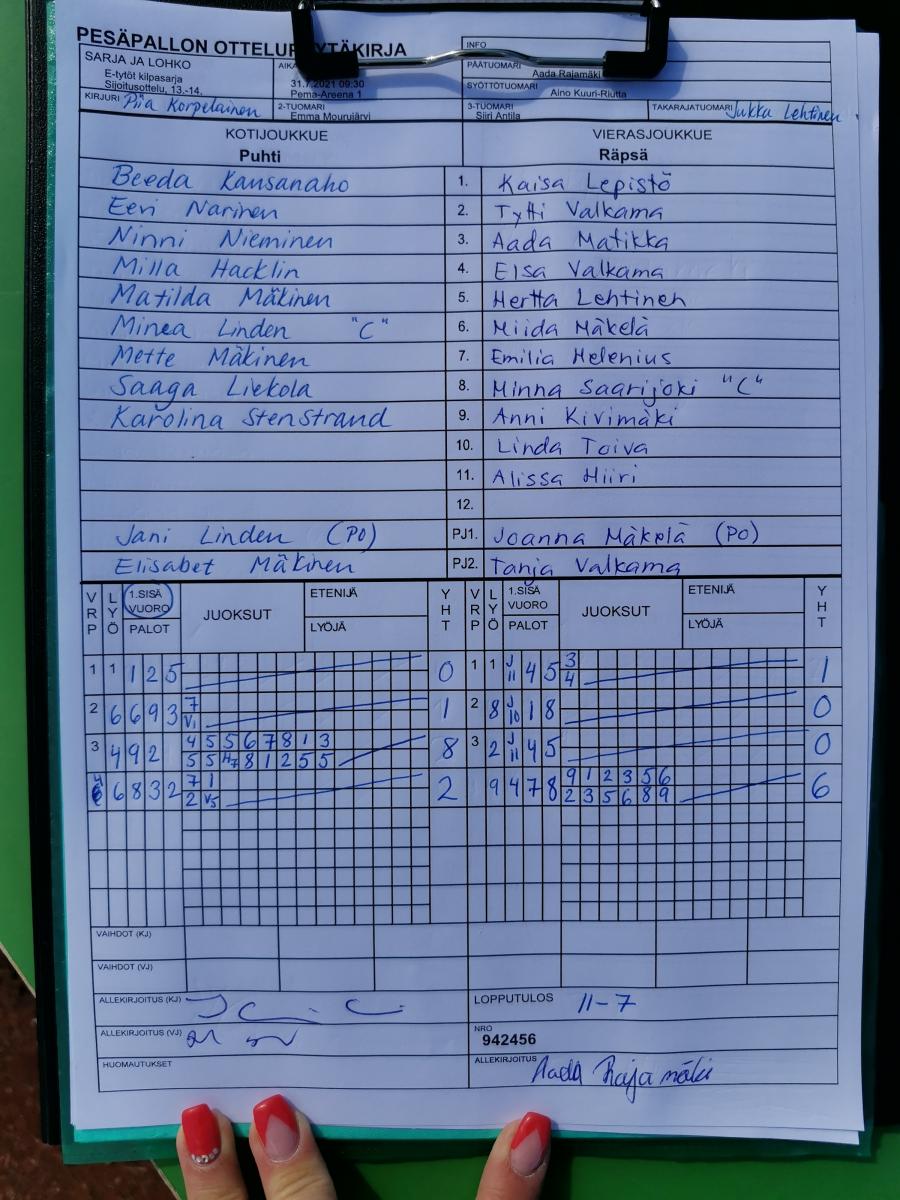 PESÄPALLON OTTELUPÖYTÄKIRJA
INFO
SARJA JA LOHKO
E-tytöt kilpasarja
Sijoitusottelu, 13.-14.
31.7.2021 09:30
Pema-Areena 1
PÄÄTUOMARI Aada Rajamäki
SYÖTTÖTUOMARI Aino Kuuri-Riutta
KIRJURI Piia Korpelainen
2-TUOMARI
Emma Mourujärvi
3-TUOMARI
Siiri Antila
TAKARAJATUOMARI Jukka Lehtinen
KOTIJOUKKUE VIERASJOUKKUE
Puhti Räpsä
Beeda Kansanaho 1. Kaisa Lepistö
Eevi Narinen 2. Tytti Valkama
Ninni Nieminen 3. Aada Matikka
Milla Hacklin 4. Elsa Valkama
Matilda Mäkinen 5. Hertta Lehtinen
Minea Linden "C" 6. Miida Mäkelä
Mette Mäkinen 7. Emilia Helenius
Saaga Liekola 8. Minna Saarijoki "C"
Karolina Stenstrand 9. Anni Kivimäki
10. Linda Toiva
11. Alissa Hiiri
12.
Jani Linden (PO) PJ1. Joanna Mäkelä (PO)
Elisabet Mäkinen PJ2. Tanja Valkama
VRP LYÖ 1.SISÄ VUORO PALOT JUOKSUT ETENIJÄ LYÖJÄ YHT VRP LYÖ 1.SISÄ VUORO PALOT JUOKSUT ETENIJÄ LYÖJÄ YHT
1 1 1 2 5 0 1 1 J11 4 5 3 1
4
2 6 6 9 3 7 1 2 8 J10 1 8 0
V1
3 4 9 2 1 4 5 5 6 7 8 1 3 8 3 2 J11 4 5 0
5 5 4 7 8 1 2 5 5
4 6 8 3 2 7 1 2 9 4 7 8 9 1 2 3 5 6 6
2 V5 2 3 5 6 8 9
VAIHDOT (KJ)
VAIHDOT (VJ)
ALLEKIRJOITUS (KJ) LOPPUTULOS 11-7
ALLEKIRJOITUS (VJ) NRO
942456
HUOMAUTUKSET ALLEKIRJOITUS Aada Rajamäki